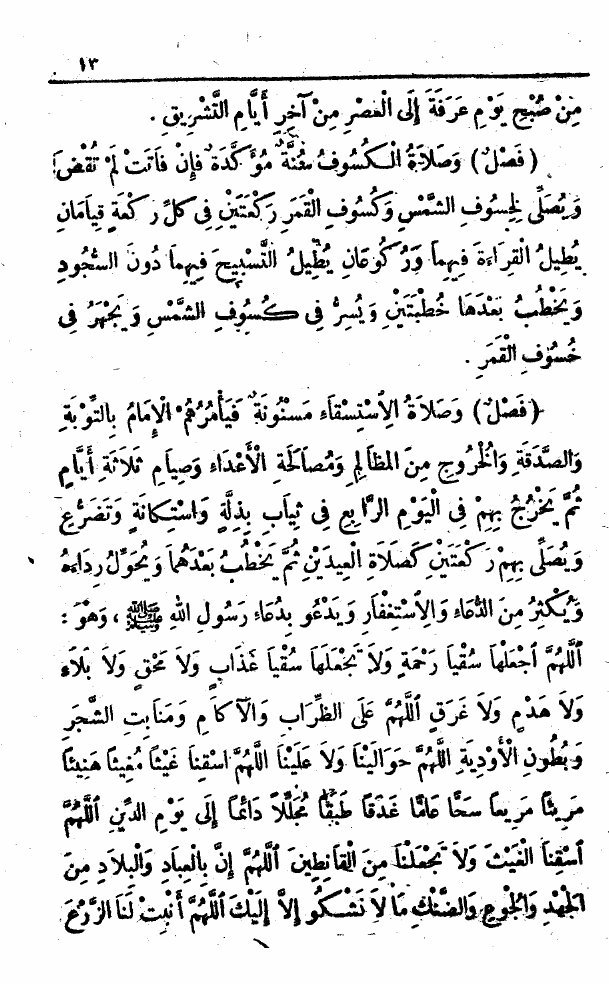 ١٣
مِنْ صُبْحِ يَوْمِ عَرَفَةَ إِلَى الْعَصْرِ مِنْ آخِرِ أَيَّامِ التَّشْرِيقِ .
( فَصْلٌ ) وَصَلَاةُ الْكُسُوفِ سُنَّةٌ مُؤَكَّدَةٌ فَإِنْ فَاتَتْ لَمْ تُقْضَ
وَيُصَلِّى لِخُسُوفِ الشَّمْسِ وَكُسُوفِ الْقَمَرِ رَكْعَتَيْنِ فِى كُلِّ رَكْعَةٍ قِيَامَانِ
يُطِيلُ الْقِرَاءَةَ فِيهِمَا وَرُكُوعَانِ يُطِيلُ التَّسْبِيحَ فِيهِمَا دُونَ السُّجُودِ
وَيَخْطُبُ بَعْدَهَا خُطْبَتَيْنِ وَيُسِرُّ فِى كُسُوفِ الشَّمْسِ وَيَجْهَرُ فِى
خُسُوفِ الْقَمَرِ .
( فَصْلٌ ) وَصَلَاةُ الْاِسْتِسْقَاءِ مَسْنُونَةٌ فَيَأْمُرُهُمْ الْإِمَامُ بِالتَّوْبَةِ
وَالصَّدَقَةِ وَالْخُرُوجِ مِنَ المَظَالِمِ وَمُصَالَحَةِ الْأَعْدَاءِ وَصِيَامِ ثَلَاثَةِ أَيَّامٍ
ثُمَّ يَخْرُجُ بِهِمْ فِى الْيَوْمِ الرَّابِعِ فِى ثِيَابِ بِذْلَةٍ وَاسْتِكَانَةٍ وَتَضَرُّعٍ
وَيُصَلِّى بِهِمْ رَكْعَتَيْنِ كَصَلَاةِ الْعِيدَيْنِ ثُمَّ يَخْطُبُ بَعْدَهُمَا وَيُحَوِّلُ رِدَاءَهُ
وَيُكْثِرُ مِنَ الدُّعَاءِ وَالْاِسْتِغْفَارِ وَيَدْعُو بِدُعَاءِ رَسُولِ اللهِ ﷺ ، وَهُوَ :
اَللَّهُمَّ اجْعَلْهَا سُقْيَا رَحْمَةٍ وَلَا تَجْعَلْهَا سُقْيَا عَذَابٍ وَلَا مَحْقٍ وَلَا بَلَاءٍ
وَلَا هَدْمٍ وَلَا غَرَقٍ اَللَّهُمَّ عَلَى الظِّرَابِ وَالْآكَامِ وَمَنَابِتِ الشَّجَرِ
وَبُطُونِ الْأَوْدِيَةِ اللَّهُمَّ حَوَالَيْنَا وَلَا عَلَيْنَا اللَّهُمَّ اسْقِنَا غَيْثًا مُغِيثًا هَنِيئًا
مَرِيئًا مَرِيعاً سَحًّا عَامًّا غَدَقاً طَبَقًا مُجَلَّلاً دَائِماً إِلَى يَوْمِ الدِّينِ اَللَّهُمَّ
اَسْقِنَا الْغَيْثَ وَلَا تَجْعَلْنَا مِنَ الْقَانِطِينَ اَللَّهُمَّ إِنَّ بِالْعِبَادِ وَالْبِلَادِ مِنَ
الْجَهْدِ وَالْجُوعِ وَالضَّنْكِ مَا لَا نَشْكُو إِلَّا إِلَيْكَ اَللَّهُمَّ أَنْبِتْ لَنَا الزَّرْعَ